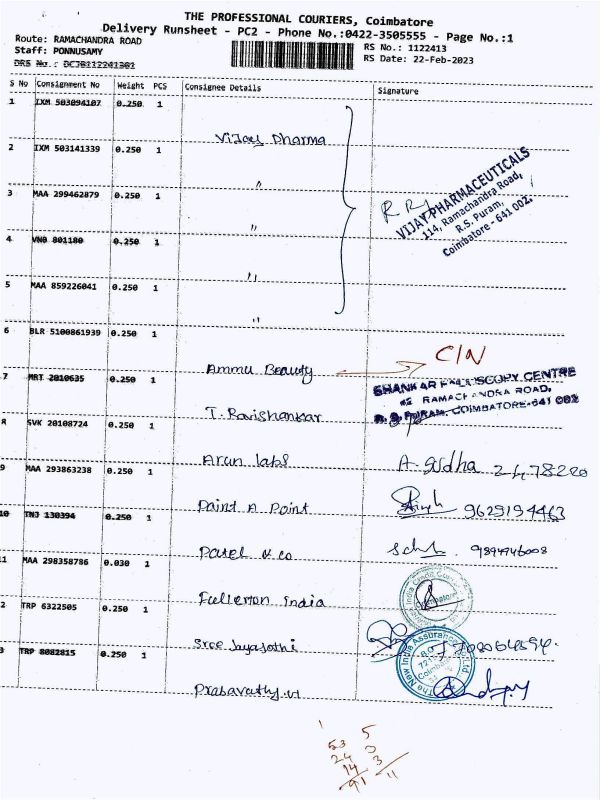 THE PROFESSIONAL COURIERS, Coimbatore
Delivery Runsheet - PC2 - Phone No.:0422-3505555 - Page No.:1
Route: RAMACHANDRA ROAD
RS No.: 1122413
Staff: PONNUSAMY
RS Date: 22-Feb-2023
S No Consignment No Weight PCS Consignee Details Signature
1 IXM 503094107 0.250 1
Vijay Pharma
2 IXM 503141339 0.250 1
"
3 MAA 299462879 0.250 1
"
4 VNB 801180 0.250 1
"
5 MAA 859226041 0.250 1
"
VIJAY PHARMACEUTICALS
114, Ramachandra Road,
R.S. Puram,
Coimbatore - 641 002.
6 BLR 5100861939 0.250 1
Ammu Beauty C/N
7 MRT 2010635 0.250 1
T. Ravishankar
SHANKAR ENDOSCOPY CENTRE
RAMACHANDRA ROAD,
R. S. PURAM, COIMBATORE-641 002
8 SVK 20108724 0.250 1
Arun labs A. Sudha
9 MAA 293863238 0.250 1
Paint A Point 9629194463
10 TNJ 130394 0.250 1
Patel & co
11 MAA 298358786 0.030 1
Fullerton India
Coimbatore
2 TRP 6322505 0.250 1
Sree Jayajothi
3 TRP 8082815 0.250 1
Prabavathy.v
The New India Assurance Co. Ltd
53 5
24 0
14 3
91 11